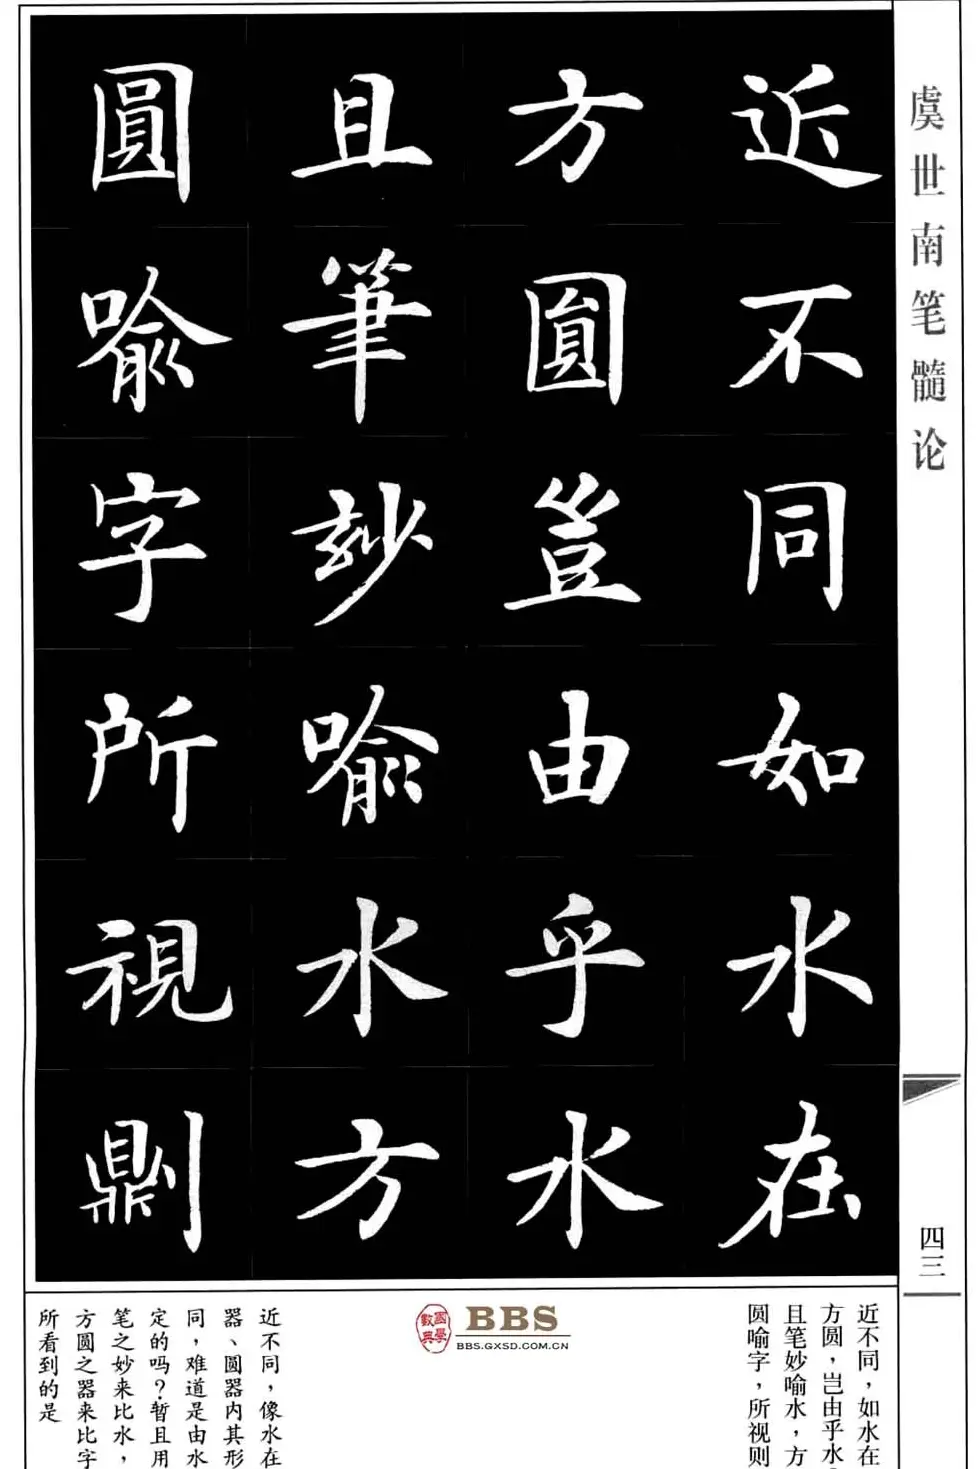 虞世南笔髓论
四三
近不同如水在
方圓豈由乎水
且筆玅喻水方
圓喻字所視劓
近不同，如水在
方圆，岂由乎水
且笔妙喻水，方
圆喻字，所视则
國學數典
BBS
BBS.GXSD.COM.CN
近不同，像水在
器、圆器内其形
同，难道是由水
定的吗？暂且用
笔之妙来比水，
方圆之器来比字
所看到的是